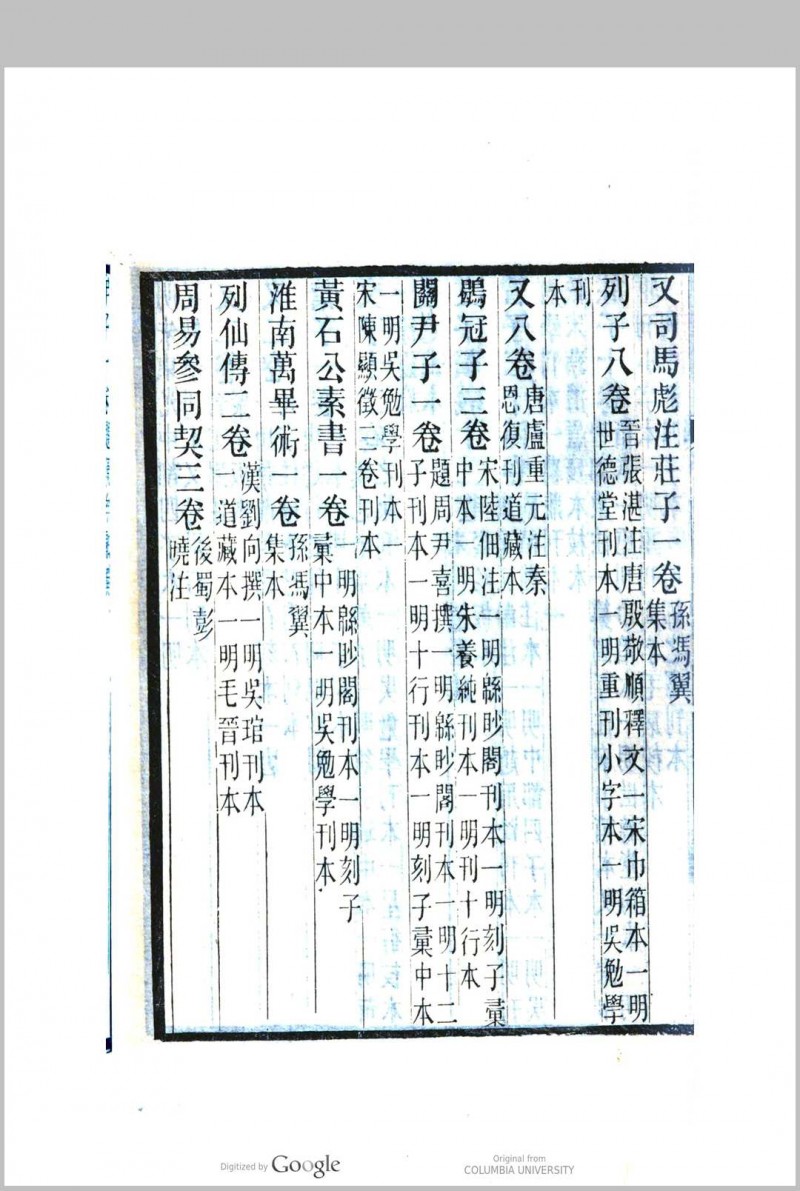 又司馬彪注莊子一卷孫馮翼
集本
列子八卷晉張湛注唐殷敬順釋文一宋巾箱本一明
世德堂刊本一明重刊小字本一明吳勉學
刊
本
又八卷唐盧重元注秦
恩復刊道藏本
鶡冠子三卷宋陸佃注一明緜眇閣刊本一明刻子彙
中本一明朱養純刊本一明刊十行本
關尹子一卷題周尹喜撰一明緜眇閣刊本一明十二
子刊本一明十行刊本一明刻子彙中本
一明吳勉學刊本一
宋陳顯微三卷刊本
黃石公素書一卷一明緜眇閣刊本一明刻子
彙中本一明吳勉學刊本
淮南萬畢術一卷孫馮翼
集本
列仙傳二卷漢劉向撰一明吳琯刊本
一道藏本一明毛晉刊本
周易參同契三卷後蜀彭
曉注
Digitized by Google
Original from
COLUMBIA UNIVERSITY